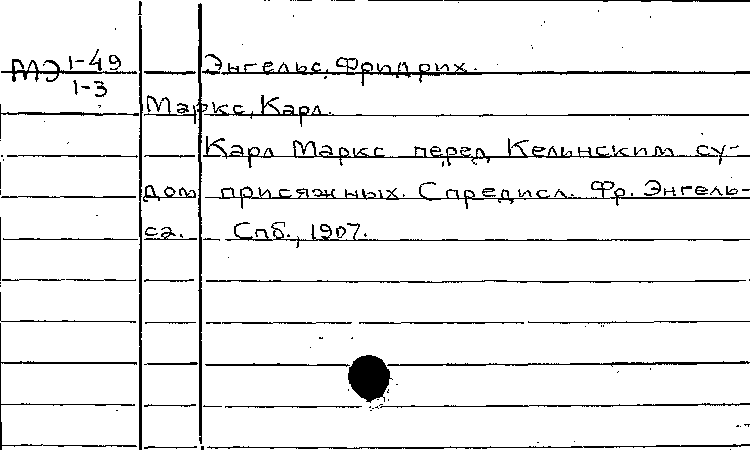 МЭ 1-49
1-3
Энгельс, Фридрих.
Маркс, Карл.
Карл Маркс перед Кельнским су-
дом присяжных. С предисл. Фр. Энгель-
са. Спб., 1907.